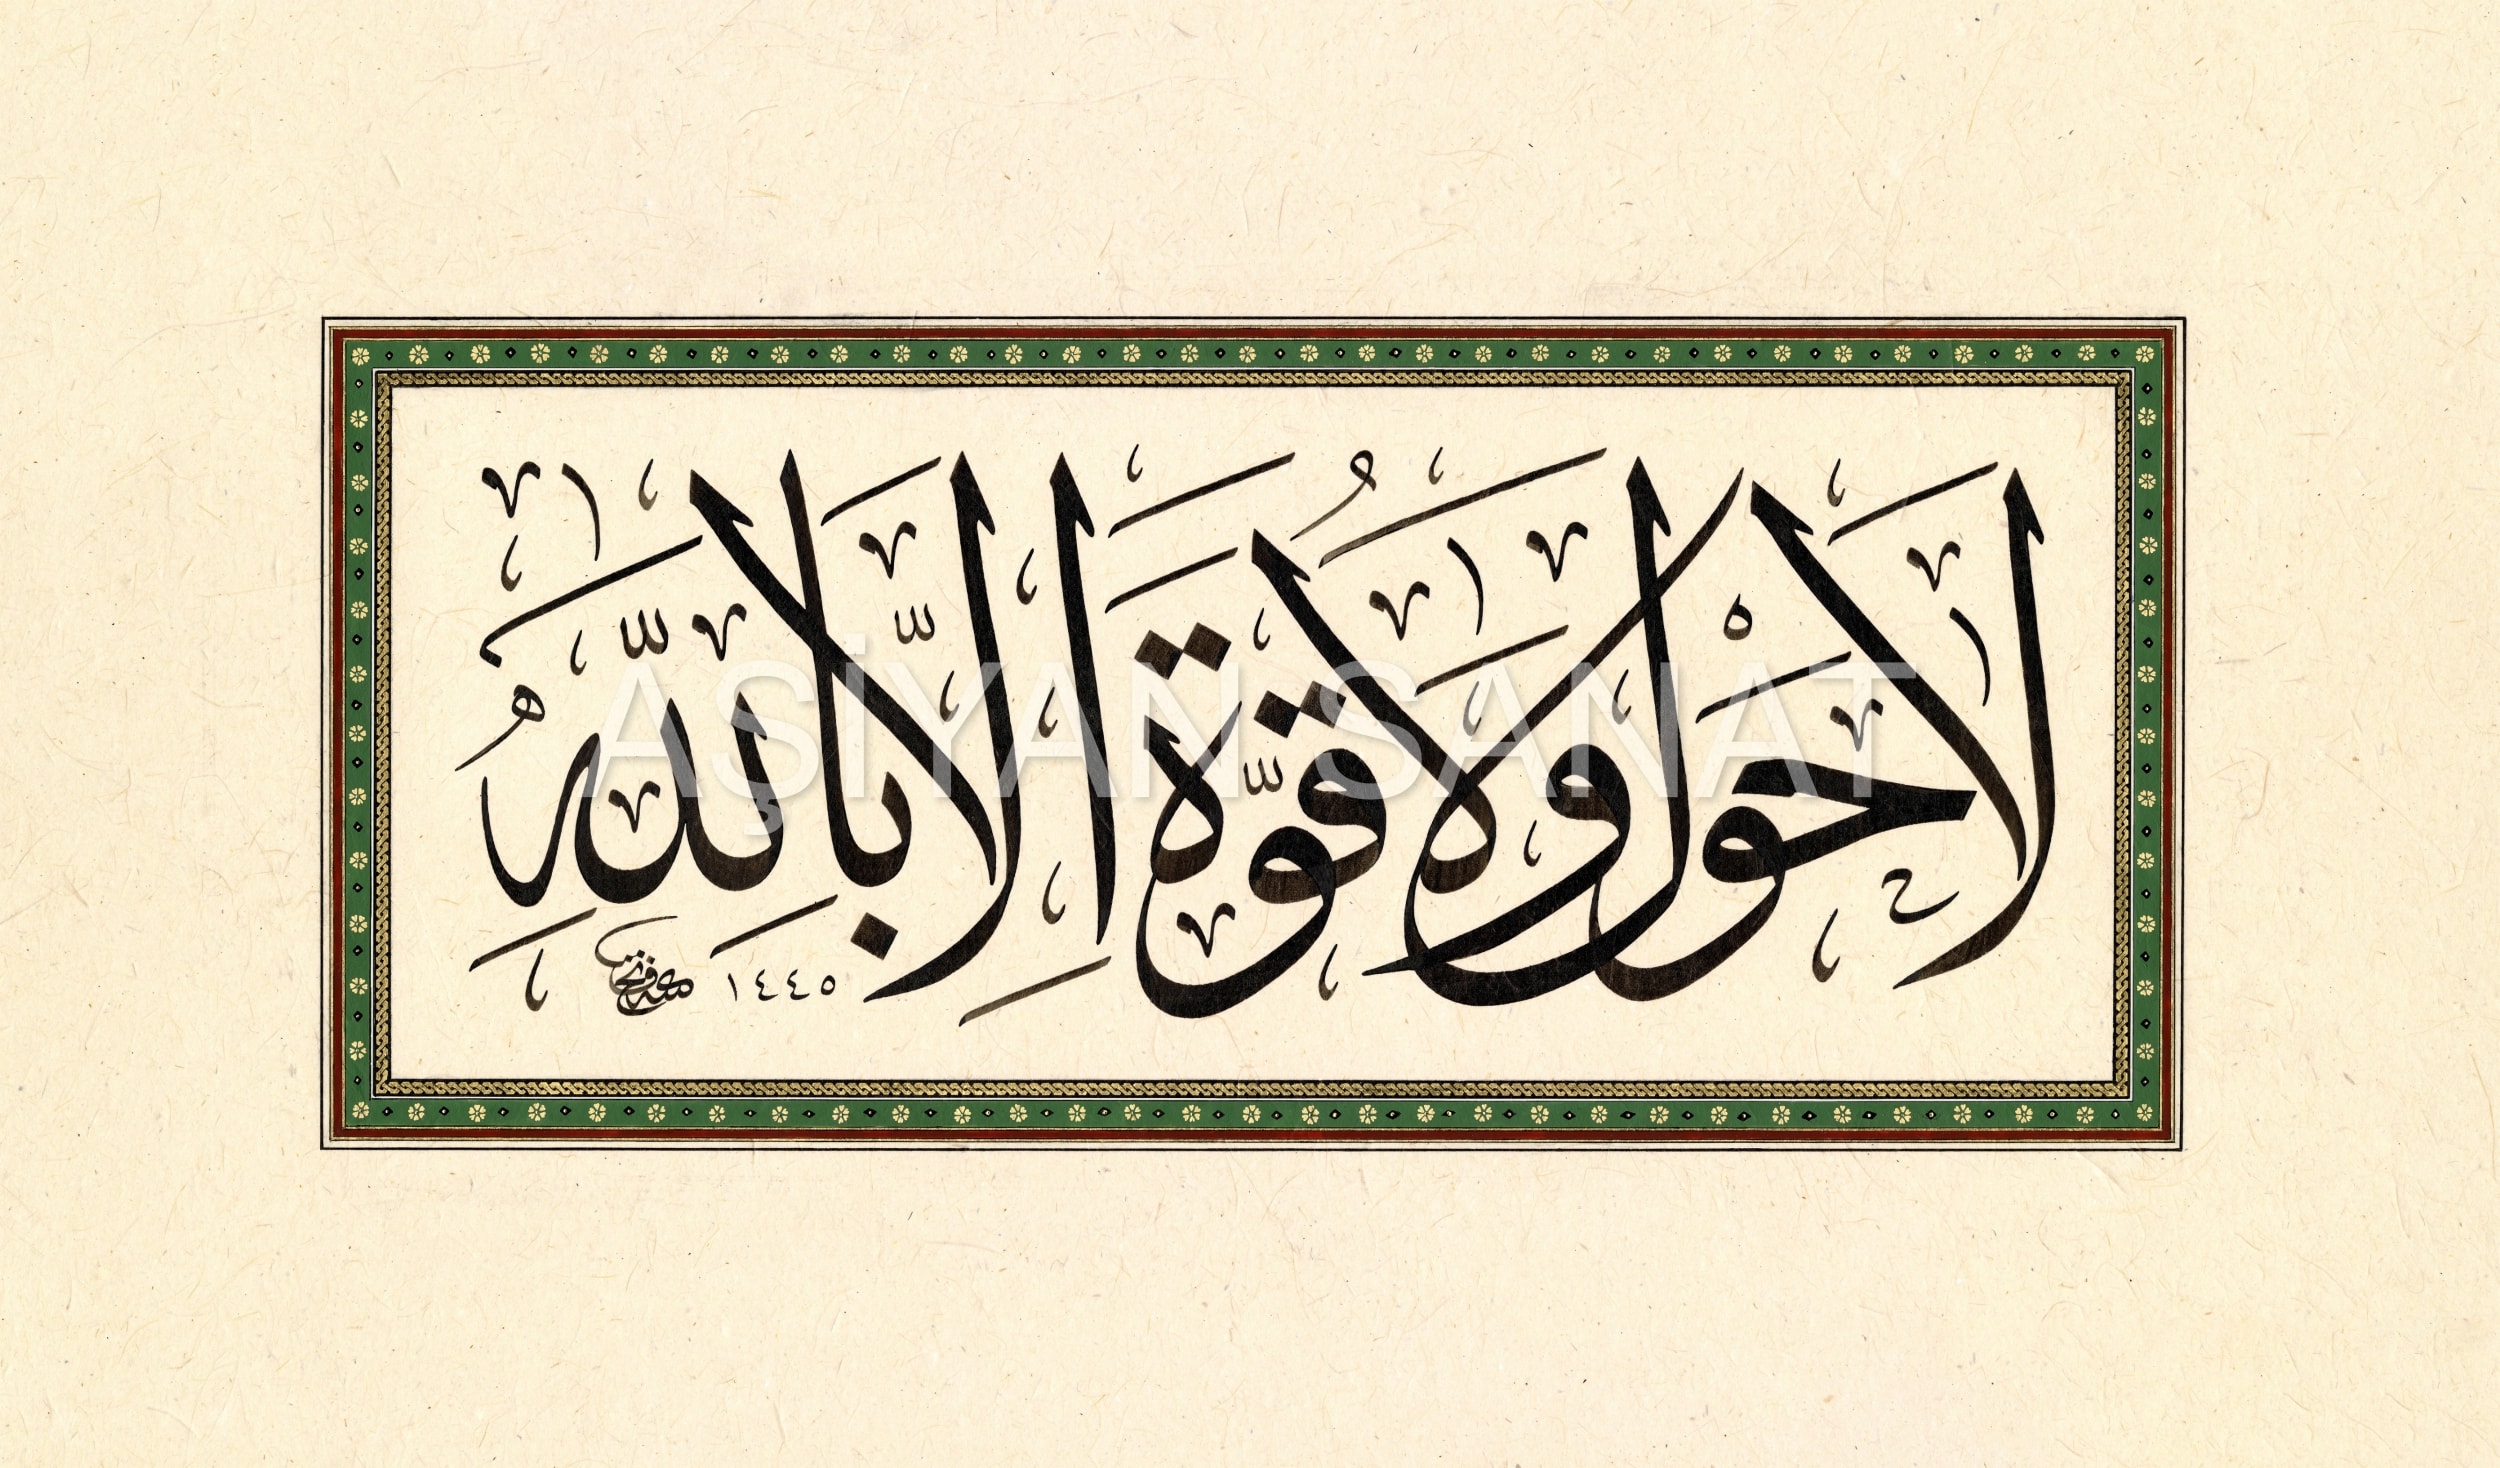 لَا حَوْلَ وَلَا قُوَّةَ اِلَّا بِاللّٰهِ
١٤٤٥
AŞİYAN SANAT